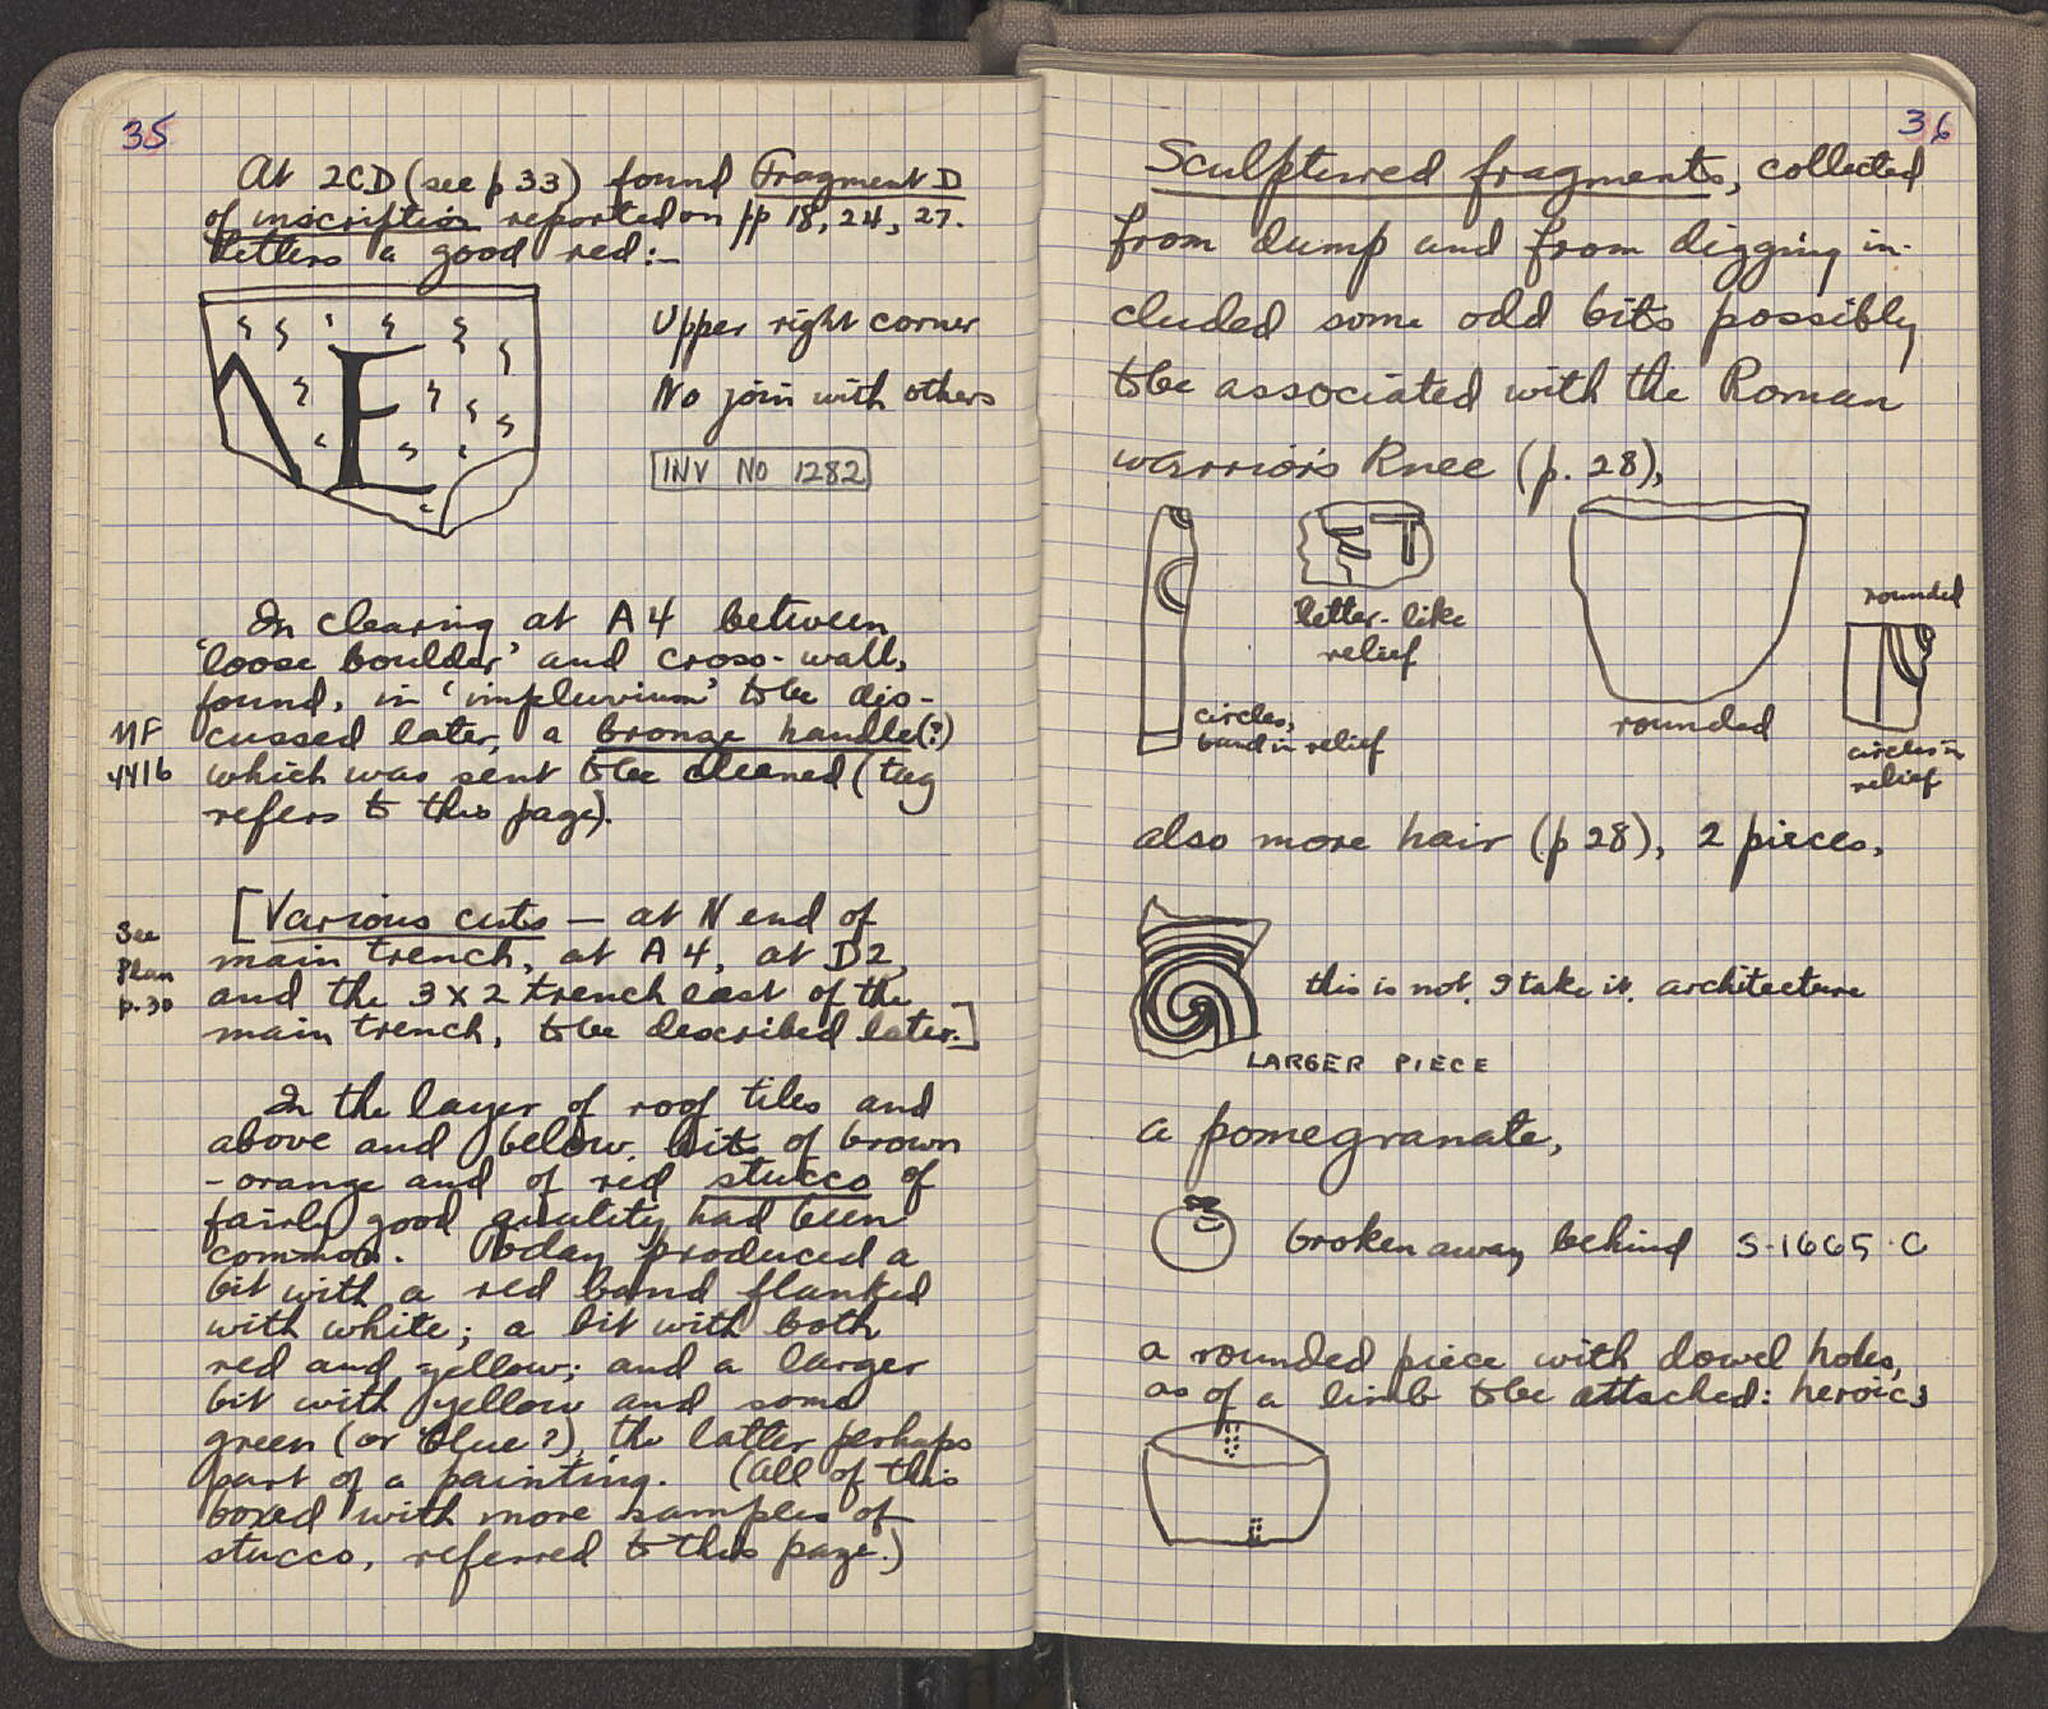 35
At 2CD (see p 33) found Fragment D
of inscription reported on pp 18, 24, 27.
letters a good red:-
NE
Upper right corner
No join with others
INV NO 1282
In clearing at A4 between
'loose boulder' and cross-wall,
found, in 'impluvium' to be dis-
MF
4416
cussed later, a bronze handle(?)
which was sent to be cleaned (tag
refers to this page).
See
Plan
p. 30
[Various cuts — at N end of
main trench, at A4, at D2,
and the 3x2 trench east of the
main trench, to be described later.]
In the layer of roof tiles and
above and below, bits of brown
-orange and of red stucco of
fairly good quality had been
common. Today produced a
bit with a red band flanked
with white; a bit with both
red and yellow; and a larger
bit with yellow and some
green (or blue?), the latter perhaps
part of a painting. (All of this
boxed with more samples of
stucco, referred to this page.)
36
Sculptured fragments, collected
from dump and from digging in-
cluded some odd bits possibly
to be associated with the Roman
warrior's Knee (p. 28),
letter-like
relief
circles,
band in relief
rounded
rounded
circles in
relief
also more hair (p 28), 2 pieces,
this is not, I take it, architecture
LARGER PIECE
a pomegranate,
broken away behind S-1665·C
a rounded piece with dowel holes,
as of a limb to be attached: heroic;